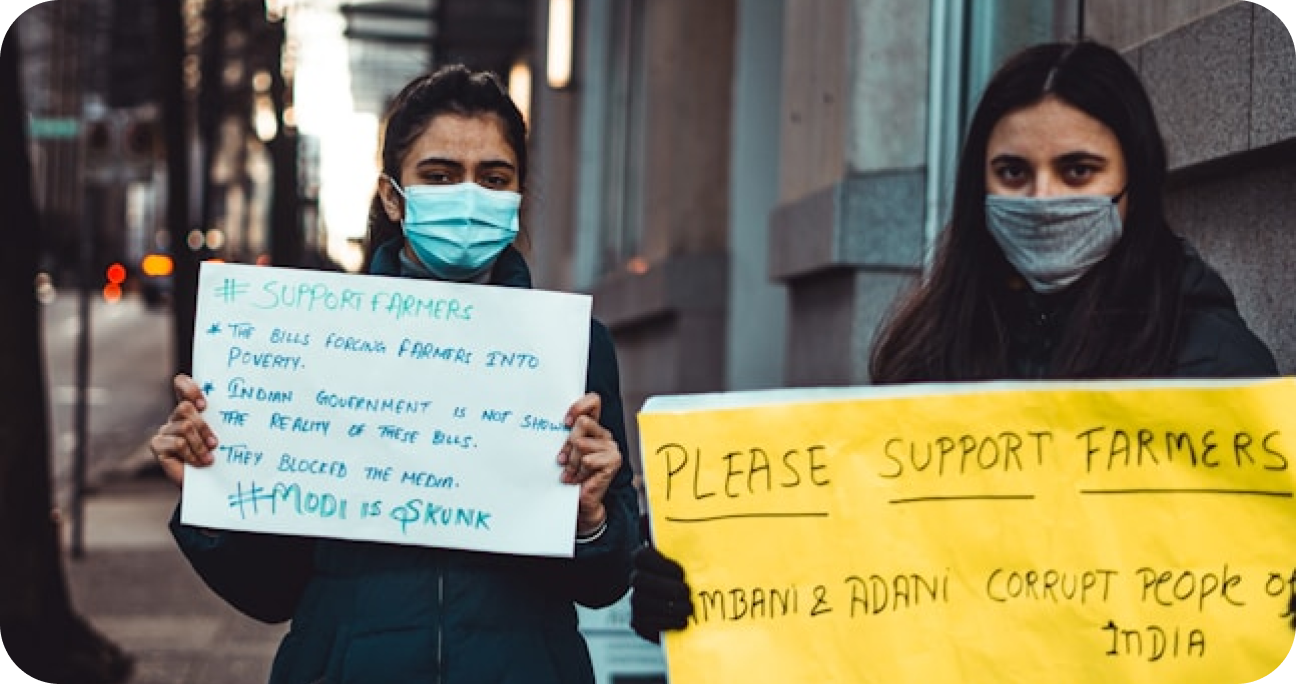 # SUPPORT FARMERS
* THE BILLS FORCING FARMERS INTO
POVERTY.
* INDIAN GOVERNMENT IS NOT SHOW
THE REALITY OF THESE BILLS.
* THEY BLOCKED THE MEDIA.
#MODI IS SKUNK
PLEASE SUPPORT FARMERS
MBANI & ADANI CORRUPT PEOPLE OF
INDIA